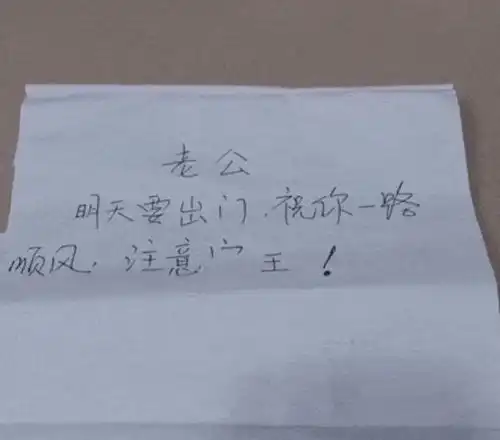 老公
明天要出门，祝你一路
顺风，注意宀 王！